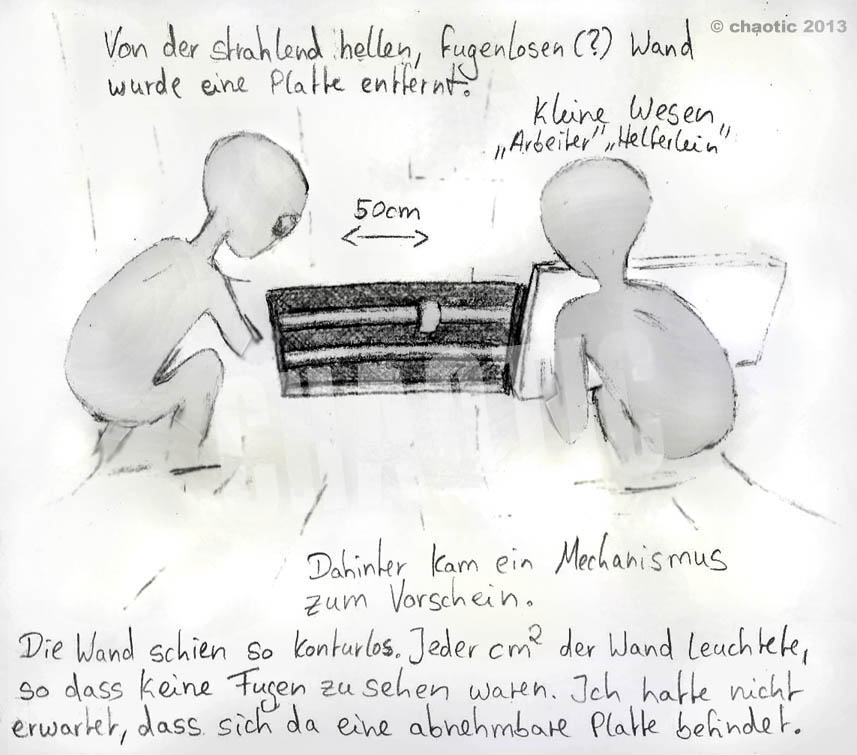 © chaotic 2013
Von der strahlend hellen, fugenlosen (?) Wand
wurde eine Platte entfernt.
Kleine Wesen
„Arbeiter" „Helferlein"
50cm
CHAOTIC
Dahinter kam ein Mechanismus
zum Vorschein.
Die Wand schien so konturlos. Jeder cm² der Wand leuchtete,
so dass keine Fugen zu sehen waren. Ich hatte nicht
erwartet, dass sich da eine abnehmbare Platte befindet.